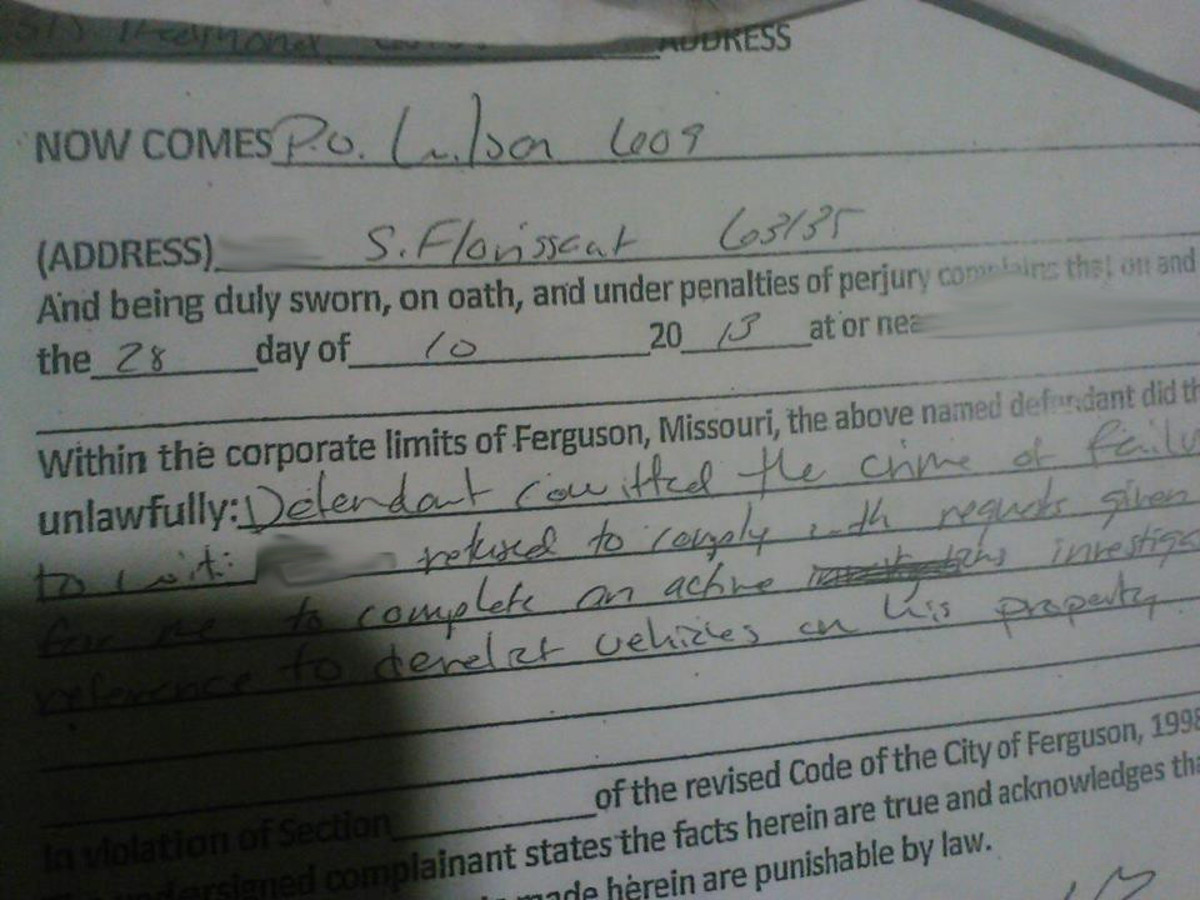 ADDRESS
NOW COMES P.O. Wilson 609
(ADDRESS) S. Florissant 63135
And being duly sworn, on oath, and under penalties of perjury complains that on and
the 28 day of 10 20 13 at or nea
Within the corporate limits of Ferguson, Missouri, the above named defendant did th
unlawfully: Defendant committed the crime of failu
to wit: refused to comply with requests given
for me to complete an active investiga
reference to derelict vehicles on his property.
In violation of Section of the revised Code of the City of Ferguson, 1998
undersigned complainant states the facts herein are true and acknowledges tha
made herein are punishable by law.